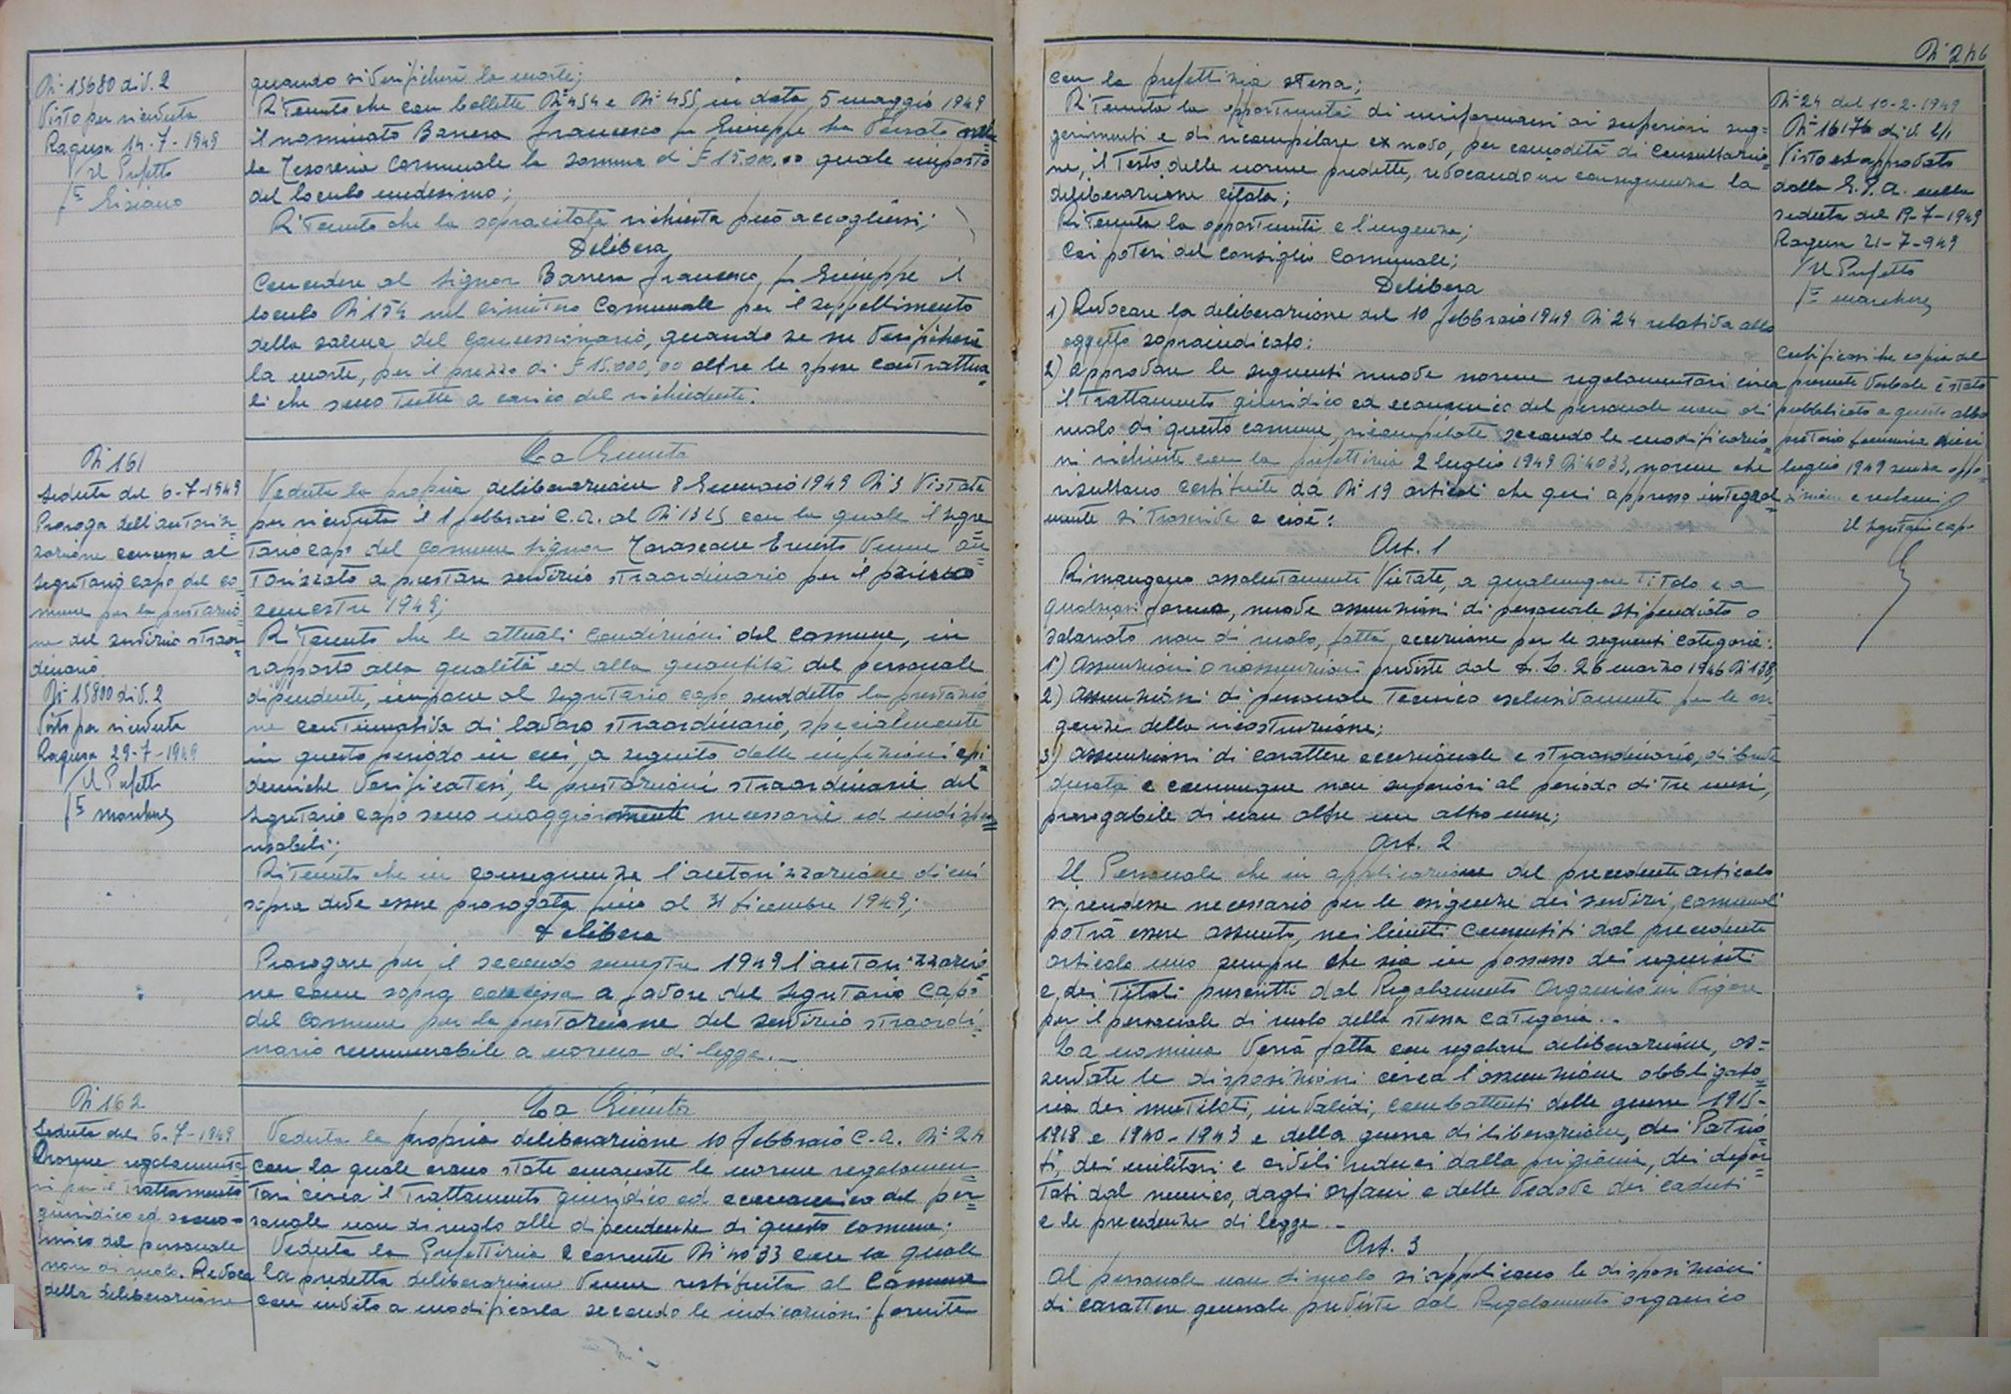 N° 15680 div. 2
Visto per ricevuta
Ragusa 14-7-1949
Il Prefetto
quando si verificherà la morte;
Ritenuto che con bollette N° 454 e N° 455 in data 5 maggio 1949
il nominato Barrera Francesco fu Giuseppe ha versato nel=
la Tesoreria Comunale la somma di £ 15.000,00 quale importo
del loculo medesimo;
Ritenuto che la sopracitata richiesta può accogliersi;
Delibera
Concedere al Signor Barrera Francesco fu Giuseppe il
loculo N° 154 nel cimitero Comunale per il seppellimento
della salma del concessionario, quando se ne verificherà
la morte, per il prezzo di £ 15.000,00 oltre le spese contrattua=
li che sono tutte a carico del richiedente.
N° 161
Seduta del 6-7-1949
Proroga dell'autoriz=
zazione concessa al
Segretario capo del co=
mune per la prestazio=
ne del servizio straor=
dinario
N° 15800 div. 2
Visto per ricevuta
Ragusa 29-7-1949
Il Prefetto
La Giunta
Veduta la propria deliberazione 8 Gennaio 1949 N° 3 Vistata
per ricevuta il 1 febbraio c.a. al N° 1325 con la quale il segre=
tario capo del comune signor Tarascone Ernesto venne au=
torizzato a prestare servizio straordinario per il primo
semestre 1949;
Ritenuto che le attuali condizioni del comune, in
rapporto alla qualità ed alla quantità del personale
dipendente, impone al segretario capo suddetto la prestazio=
ne continuativa di lavoro straordinario, specialmente
in questo periodo in cui, a seguito delle infezioni epi=
demiche verificatesi, le prestazioni straordinarie del
segretario capo sono maggiormente necessarie ed indispen=
sabili;
Ritenuto che in conseguenza l'autorizzazione di cui
sopra deve essere prorogata fino al 31 dicembre 1949;
Delibera
Prorogare per il secondo semestre 1949 l'autorizzazio=
ne come sopra concessa a favore del Segretario Capo
del comune per la prestazione del servizio straordi=
nario remunerabile a norma di legge.
N° 162
Seduta del 6-7-1949
Norme regolamenta=
ri per il trattamento
giuridico ed econo=
mico del personale
non di ruolo. Revoca
della deliberazione
La Giunta
Veduta la propria deliberazione 10 Febbraio c.a. N° 24
con la quale erano state emanate le norme regolamen=
tari circa il trattamento giuridico ed economico del per=
sonale non di ruolo alle dipendenze di questo comune;
Veduta la Prefettizia 2 corrente N° 4033 con la quale
la predetta deliberazione venne restituita al Comune
con invito a modificarla secondo le indicazioni fornite
N° 246
con la prefettizia stessa;
Ritenuta la opportunità di uniformarsi ai superiori sug=
gerimenti e di ricompilare ex novo, per comodità di consultazio=
ne, il testo delle norme predette, revocando in conseguenza la
deliberazione citata;
Ritenuta la opportunità e l'urgenza;
Coi poteri del consiglio comunale;
Delibera
1) Revocare la deliberazione del 10 febbraio 1949 N° 24 relativa allo
oggetto sopraindicato:
2) Approvare le seguenti nuove norme regolamentari circa
il trattamento giuridico ed economico del personale non di
ruolo di questo comune, ricompilate secondo le modificazio=
ni richieste con la prefettizia 2 luglio 1949 N° 4033, norme che
risultano costituite da N° 19 articoli che qui appresso integral=
mente si trascrive e cioè:
Art. 1
Rimangono assolutamente vietate, a qualunque titolo e a
qualsiasi forma, nuove assunzioni di personale stipendiato o
salariato non di ruolo, fatta eccezione per le seguenti categorie:
1) Assunzioni o riassunzioni previste dal d. L. 26 marzo 1946 N° 138,
2) Assunzioni di personale tecnico esclusivamente per le esi=
genze della ricostruzione;
3) Assunzioni di carattere eccezionale e straordinario, di breve
durata e comunque non superiori al periodo di tre mesi,
prorogabile di non oltre un altro mese;
Art. 2
Il Personale che in applicazione del precedente articolo
si rendesse necessario per le esigenze dei servizi comunali
potrà essere assunto, nei limiti consentiti dal precedente
articolo uno sempre che sia in possesso dei requisiti
e dei titoli prescritti dal Regolamento Organico in vigore
per il personale di ruolo della stessa categoria.
La nomina verrà fatta con regolare deliberazione, os=
servate le disposizioni circa l'assunzione obbligato=
ria dei mutilati, invalidi, combattenti delle guerre 1915-
1918 e 1940-1943 e della guerra di liberazione, dei Patrio=
ti, dei militari e civili reduci dalla prigionia, dei depor=
tati dal nemico, dagli orfani e delle vedove dei caduti
e le precedenze di legge.
Art. 3
Al personale non di ruolo si applicano le disposizioni
di carattere generale previste dal Regolamento organico
N° 24 del 10-2-1949
N° 16176 div. 2/1
Visto ed approvato
dalla G.P.A. nella
seduta del 19-7-1949
Ragusa 21-7-949
Il Prefetto
Certificasi che copia del
presente verbale è stata
pubblicata a questo albo
pretorio
luglio 1949 senza oppo=
sizioni e reclami
Il Segretario capo